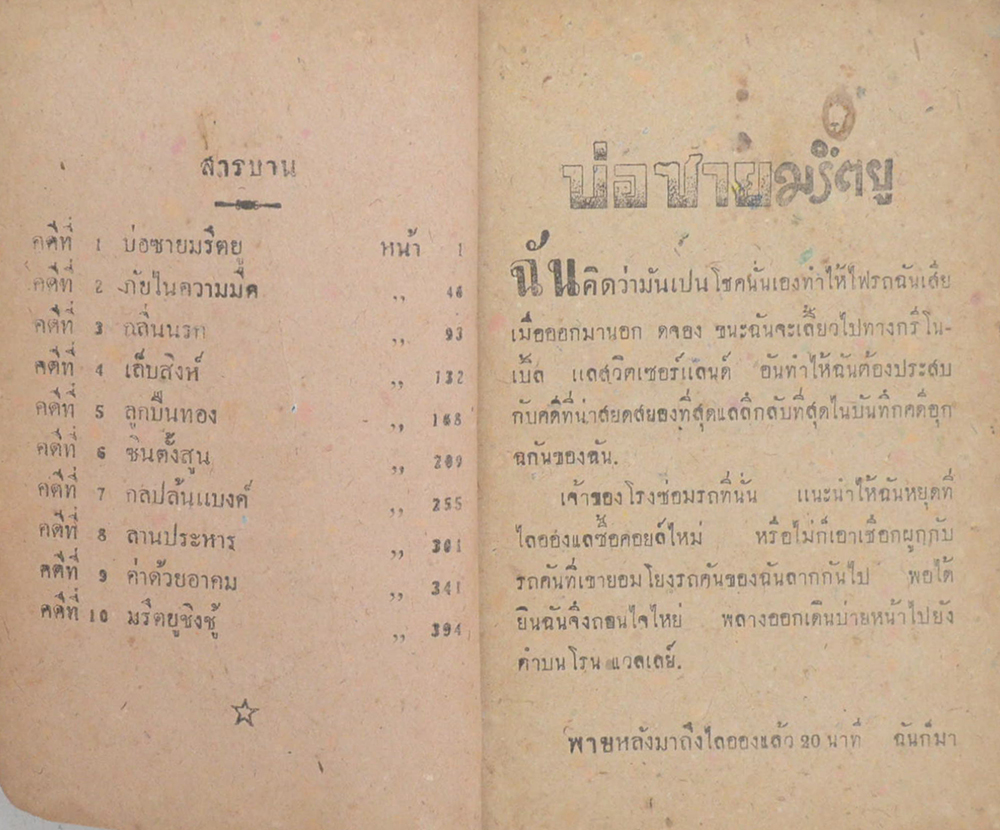 สารบาน
คดีที่ 1 บ่อซายมรึตยู หน้า 1
คดีที่ 2 ภัยในความมืด ,, 46
คดีที่ 3 กลิ่นนรก ,, 93
คดีที่ 4 เล็บสิงห์ ,, 132
คดีที่ 5 ลูกปืนทอง ,, 168
คดีที่ 6 ซินตั้งสูน ,, 209
คดีที่ 7 กลปล้นแบงค์ ,, 255
คดีที่ 8 ลานประหาร ,, 301
คดีที่ 9 ค่าด้วยอาคม ,, 341
คดีที่ 10 มรึตยูชิงชู้ ,, 394
บ่อซายมรึตยู
ฉันคิดว่ามันเปนโชคนั่นเองทำไห้ไฟรถฉันเสีย
เมื่อออกมานอก ดจอง ขนะฉันจะเลี้ยวไปทางกรีโน-
เบิ้ล แลสวิตเซอร์แลนด์ อันทำไห้ฉันต้องประสบ
กับคดีที่น่าสยดสยองที่สุดแลลึกลับที่สุดในบันทึกคดีอุก
ฉกันของฉัน.
เจ้าของโรงซ่อมรถที่นั่น แนะนำไห้ฉันหยุดที่
ไลอองแลซื้อคอยล์ไหม่ หรือไม่ก็เอาเชือกผูกกับ
รถคันที่เขายอมโยงรถคันของฉันลากกันไป พอได้
ยินฉันจึงถอนไจไหย่ พลางออกเดินบ่ายหน้าไปยัง
ตำบนโรน แวลเลย์.
พายหลังมาถึงไลอองแล้ว 20 นาที ฉันก็มา